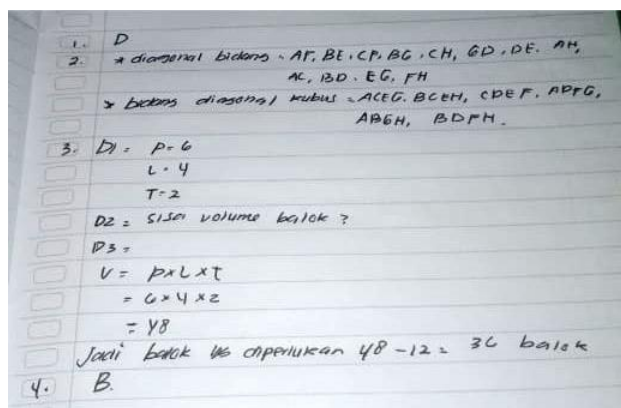 1. D
2. * diagonal bidang = AF, BE, CF, BG, CH, GD, DE, AH,
AC, BD, EG, FH
* bidang diagonal kubus = ACEG, BCEH, CDEF, ADFG,
ABGH, BDFH.
3. D1 = P = 6
L = 4
T = 2
D2 = sisa volume balok ?
D3 =
V = P x L x t
= 6 x 4 x 2
= 48
Jadi balok yg diperlukan 48 - 12 = 36 balok
4. B.